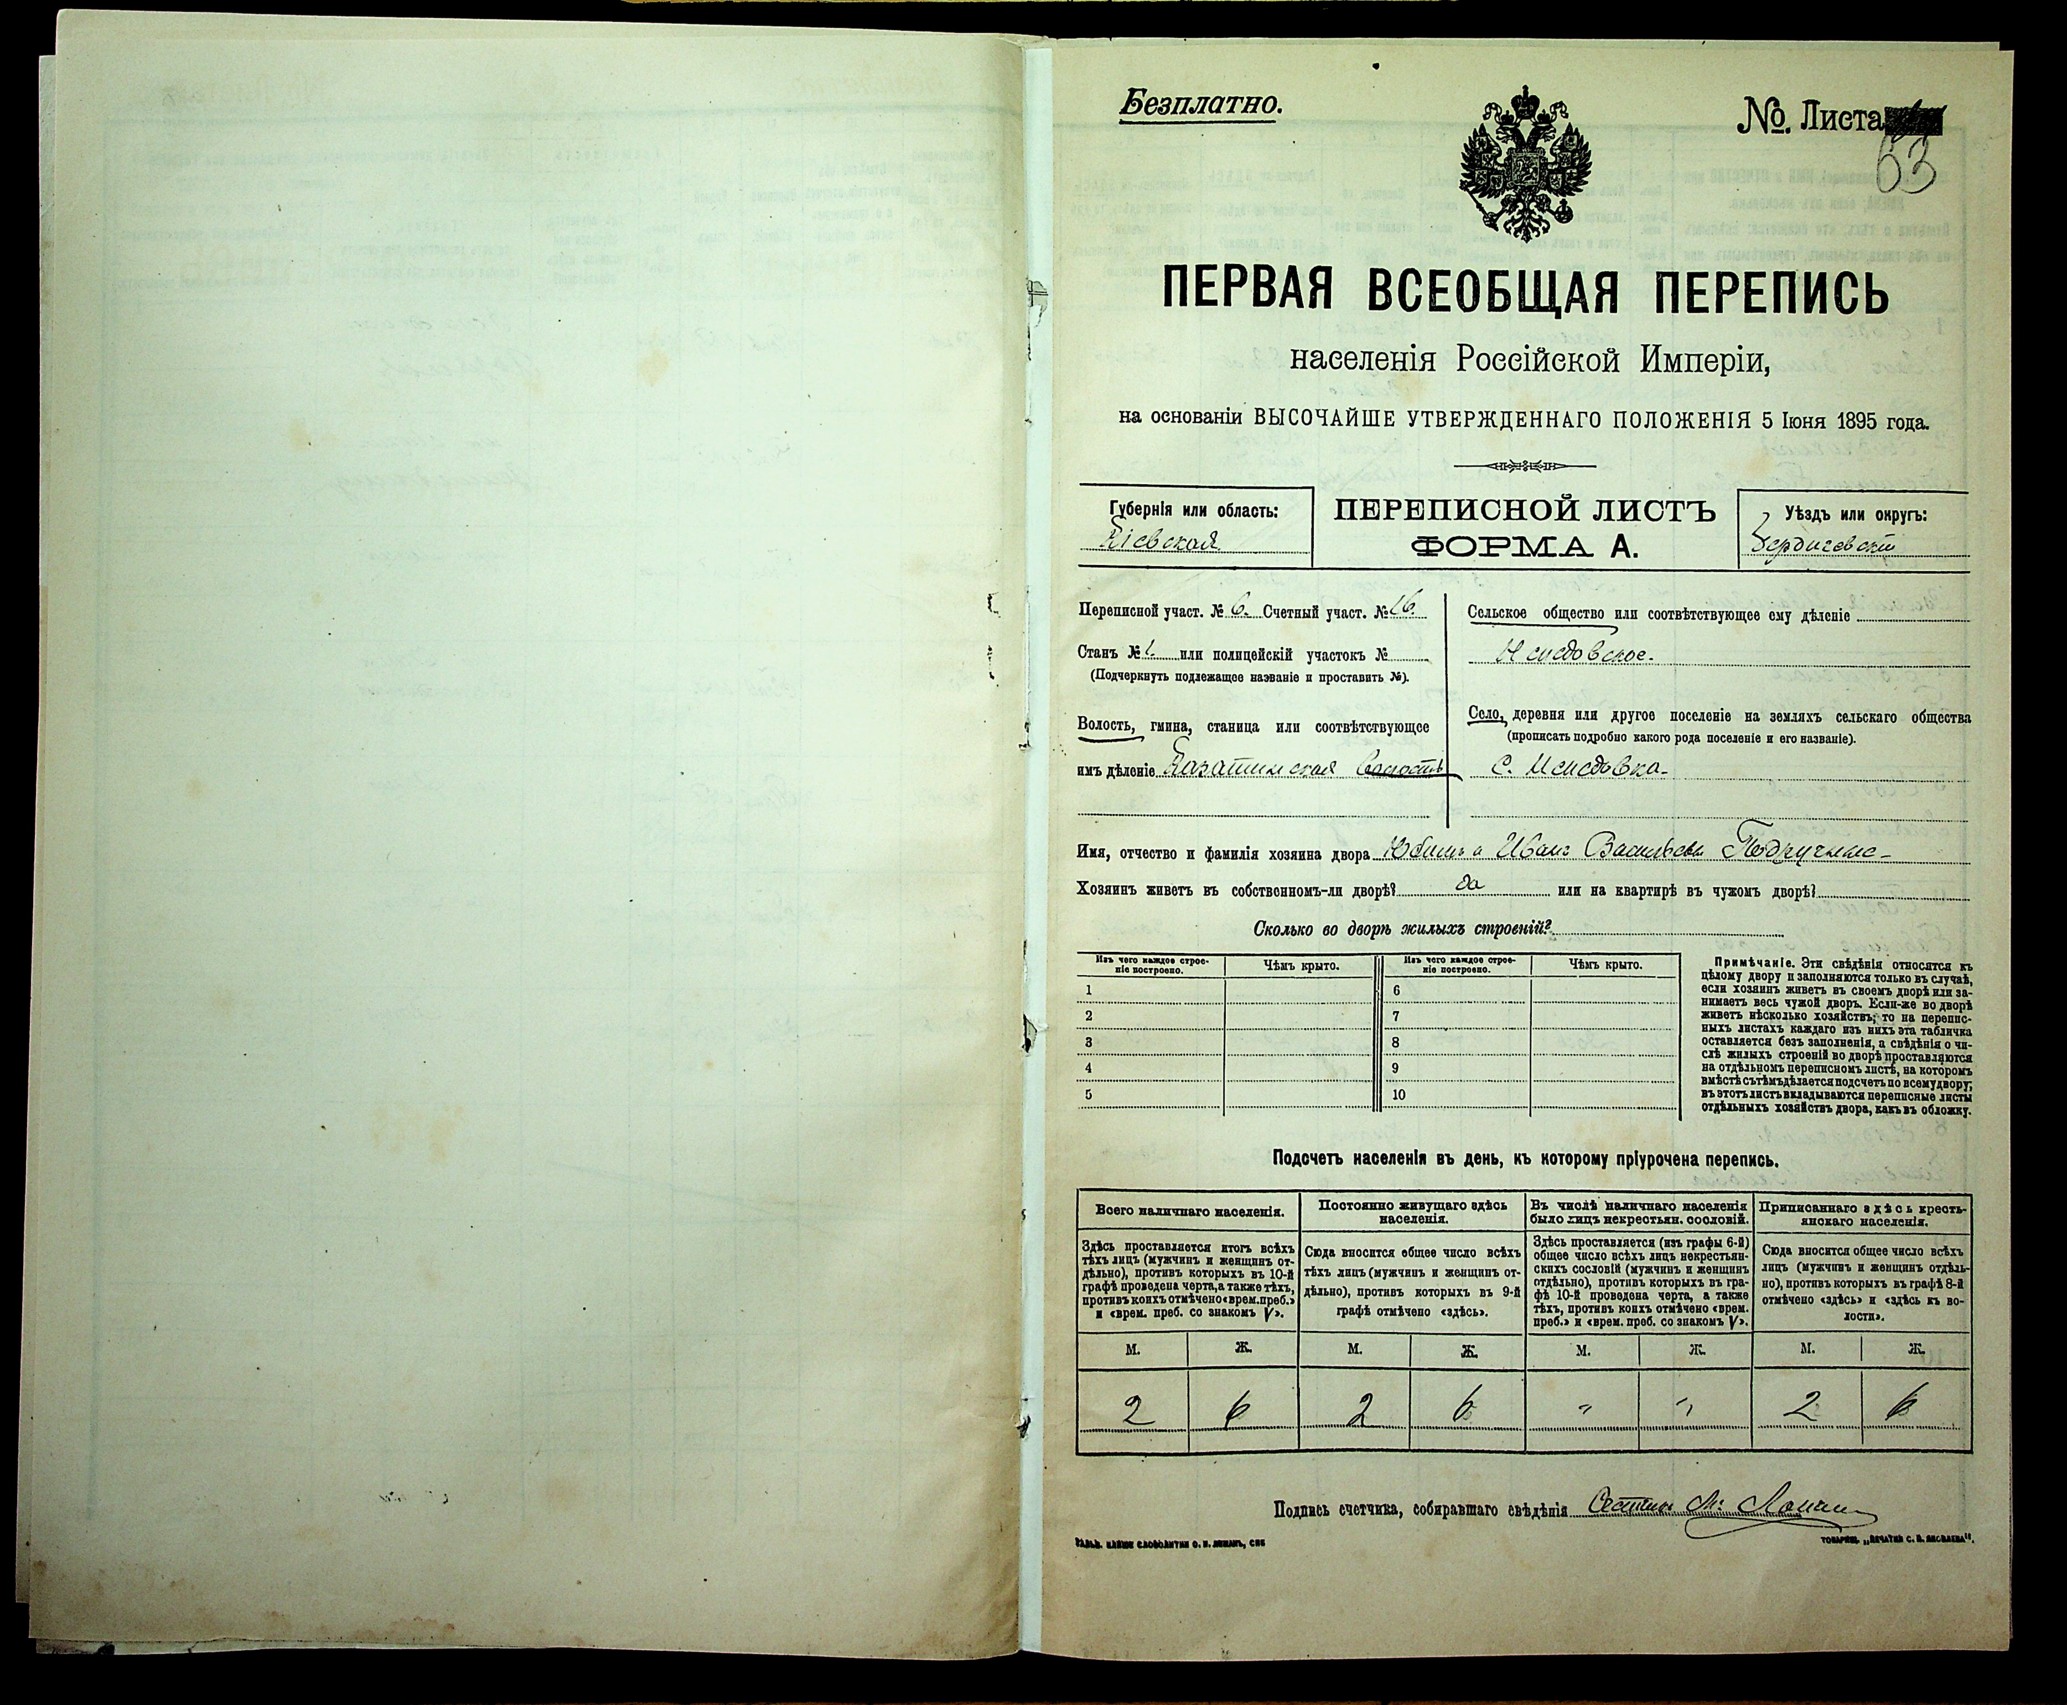 Безплатно.
№ Листа
63
ПЕРВАЯ ВСЕОБЩАЯ ПЕРЕПИСЬ
населенія Россійской Имперіи,
на основаніи ВЫСОЧАЙШЕ УТВЕРЖДЕННАГО ПОЛОЖЕНІЯ 5 Іюня 1895 года.
Губернія или область:
Кіевская
ПЕРЕПИСНОЙ ЛИСТЪ
ФОРМА А.
Уѣздъ или округъ:
Бердичевскій
Переписной участ. № 6. Счетный участ. № 16
Станъ № 1. или полицейскій участокъ №
(Подчеркнуть подлежащее названіе и проставить №).
Волость, гмина, станица или соотвѣтствующее
имъ дѣленіе Казатинская волость
Сельское общество или соотвѣтствующее ему дѣленіе
Село, деревня или другое поселеніе на земляхъ сельскаго общества
(прописать подробно какого рода поселеніе и его названіе).
С.
Имя, отчество и фамилія хозяина двора Иванъ Васильевъ
Хозяинъ живетъ въ собственномъ-ли дворѣ? да или на квартирѣ въ чужомъ дворѣ?
Сколько во дворѣ жилыхъ строеній?
Изъ чего каждое строе-
ніе построено.
Чѣмъ крыто.
Изъ чего каждое строе-
ніе построено.
Чѣмъ крыто.
1 6
2 7
3 8
4 9
5 10
Примѣчаніе. Эти свѣдѣнія относятся къ
цѣлому двору и заполняются только въ случаѣ,
если хозяинъ живетъ въ своемъ дворѣ или за-
нимаетъ весь чужой дворъ. Если-же во дворѣ
живетъ нѣсколько хозяйствъ, то на перепис-
ныхъ листахъ каждаго изъ нихъ эта табличка
оставляется безъ заполненія, а свѣдѣнія о чи-
слѣ жилыхъ строеній во дворѣ проставляются
на отдѣльномъ переписномъ листѣ, на которомъ
вмѣстѣ съ тѣмъ дѣлается подсчетъ по всему двору;
въ этотъ листъ вкладываются переписные листы
отдѣльныхъ хозяйствъ двора, какъ въ обложку.
Подсчетъ населенія въ день, къ которому пріурочена перепись.
Всего наличнаго населенія.
Здѣсь проставляется итогъ всѣхъ
тѣхъ лицъ (мужчинъ и женщинъ от-
дѣльно), противъ которыхъ въ 10-й
графѣ проведена черта, а также тѣхъ,
противъ коихъ отмѣчено «врем. преб.»
и «врем. преб. со знакомъ V».
Постоянно живущаго здѣсь
населенія.
Сюда вносится общее число всѣхъ
тѣхъ лицъ (мужчинъ и женщинъ от-
дѣльно), противъ которыхъ въ 9-й
графѣ отмѣчено «здѣсь».
Въ числѣ наличнаго населенія
было лицъ некрестьян. сословій.
Здѣсь проставляется (изъ графы 6-й)
общее число всѣхъ лицъ некрестьян-
скихъ сословій (мужчинъ и женщинъ
отдѣльно), противъ которыхъ въ гра-
фѣ 10-й проведена черта, а также
тѣхъ, противъ коихъ отмѣчено «врем.
преб.» и «врем. преб. со знакомъ V».
Приписаннаго здѣсь кресть-
янскаго населенія.
Сюда вносится общее число всѣхъ
лицъ (мужчинъ и женщинъ отдѣль-
но), противъ которыхъ въ графѣ 8-й
отмѣчено «здѣсь» и «здѣсь къ во-
лости».
М. Ж. М. Ж. М. Ж. М. Ж.
2 6 2 6 " " 2 6
Подпись счетчика, собиравшаго свѣдѣнія
ТОВАРИЩ. „ПЕЧАТНИ С. П. ЯКОВЛЕВА“.